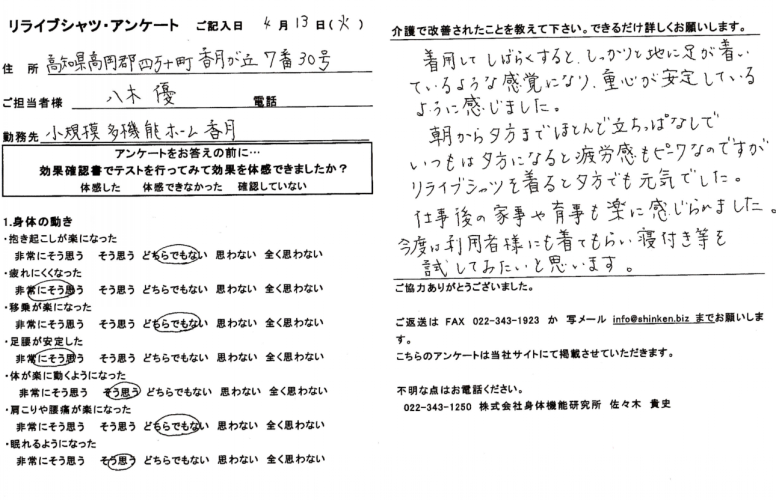 リライブシャツ・アンケート ご記入日 4月13日(火)
住 所 高知県高岡郡四万十町香月が丘7番30号
ご担当者様 八木 優 電話
勤務先 小規模多機能ホーム香月
アンケートをお答えの前に…
効果確認書でテストを行ってみて効果を体感できましたか？
体感した 体感できなかった 確認していない
1.身体の動き
・抱き起こしが楽になった
非常にそう思う そう思う どちらでもない 思わない 全く思わない
・疲れにくくなった
非常にそう思う そう思う どちらでもない 思わない 全く思わない
・移乗が楽になった
非常にそう思う そう思う どちらでもない 思わない 全く思わない
・足腰が安定した
非常にそう思う そう思う どちらでもない 思わない 全く思わない
・体が楽に動くようになった
非常にそう思う そう思う どちらでもない 思わない 全く思わない
・肩こりや腰痛が楽になった
非常にそう思う そう思う どちらでもない 思わない 全く思わない
・眠れるようになった
非常にそう思う そう思う どちらでもない 思わない 全く思わない
介護で改善されたことを教えて下さい。できるだけ詳しくお願いします。
着用してしばらくすると、しっかりと地に足が着い
ているような感覚になり、重心が安定している
ように感じました。
朝から夕方までほとんど立ちっぱなしで
いつもは夕方になると疲労感もピークなのですが
リライブシャツを着ると夕方でも元気でした。
仕事後の家事や育事も楽に感じられました。
今度は利用者様にも着てもらい寝付き等を
試してみたいと思います。
ご協力ありがとうございました。
ご返送は FAX 022-343-1923 か 写メール info@shinken.biz までお願いしま
す。
こちらのアンケートは当社サイトにて掲載させていただきます。
不明な点はお電話ください。
022-343-1250 株式会社身体機能研究所 佐々木 貴史